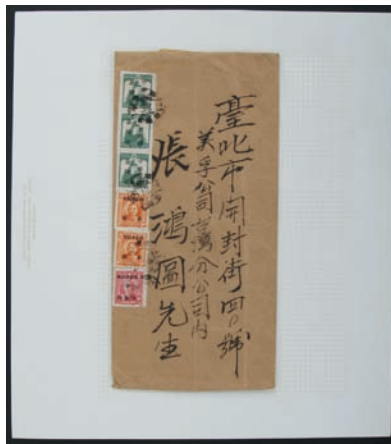 臺北市開封街四〇號
美孚公司台灣分公司內
張鴻圖先生